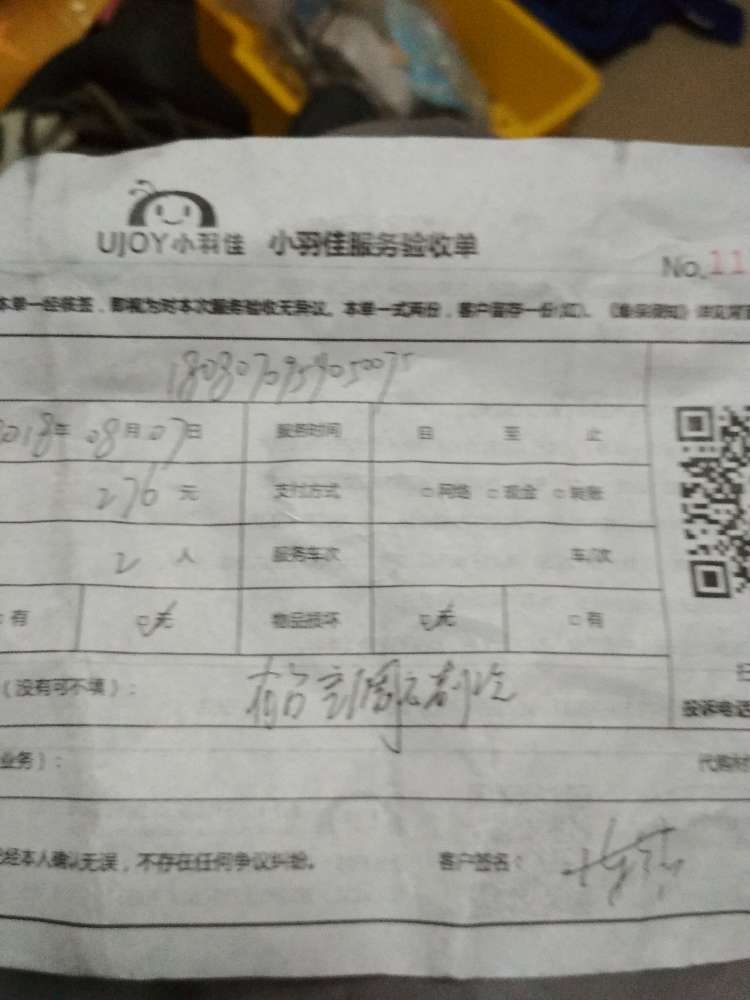 UJOY小羽佳 小羽佳服务验收单
No.11
本单一经核签，即视为对本次服务验收无异议。本单一式两份，客户留存一份(红)。
1808070959050075
2018年 08月07日 服务时间 自 至 止
276 元 支付方式 □网络 □现金 □转账
2 人 服务车次 车/次
□有 □无 物品损坏 □无 □有
（没有可不填）：
投诉电话
业务）：
经本人确认无误，不存在任何争议纠纷。 客户签名：